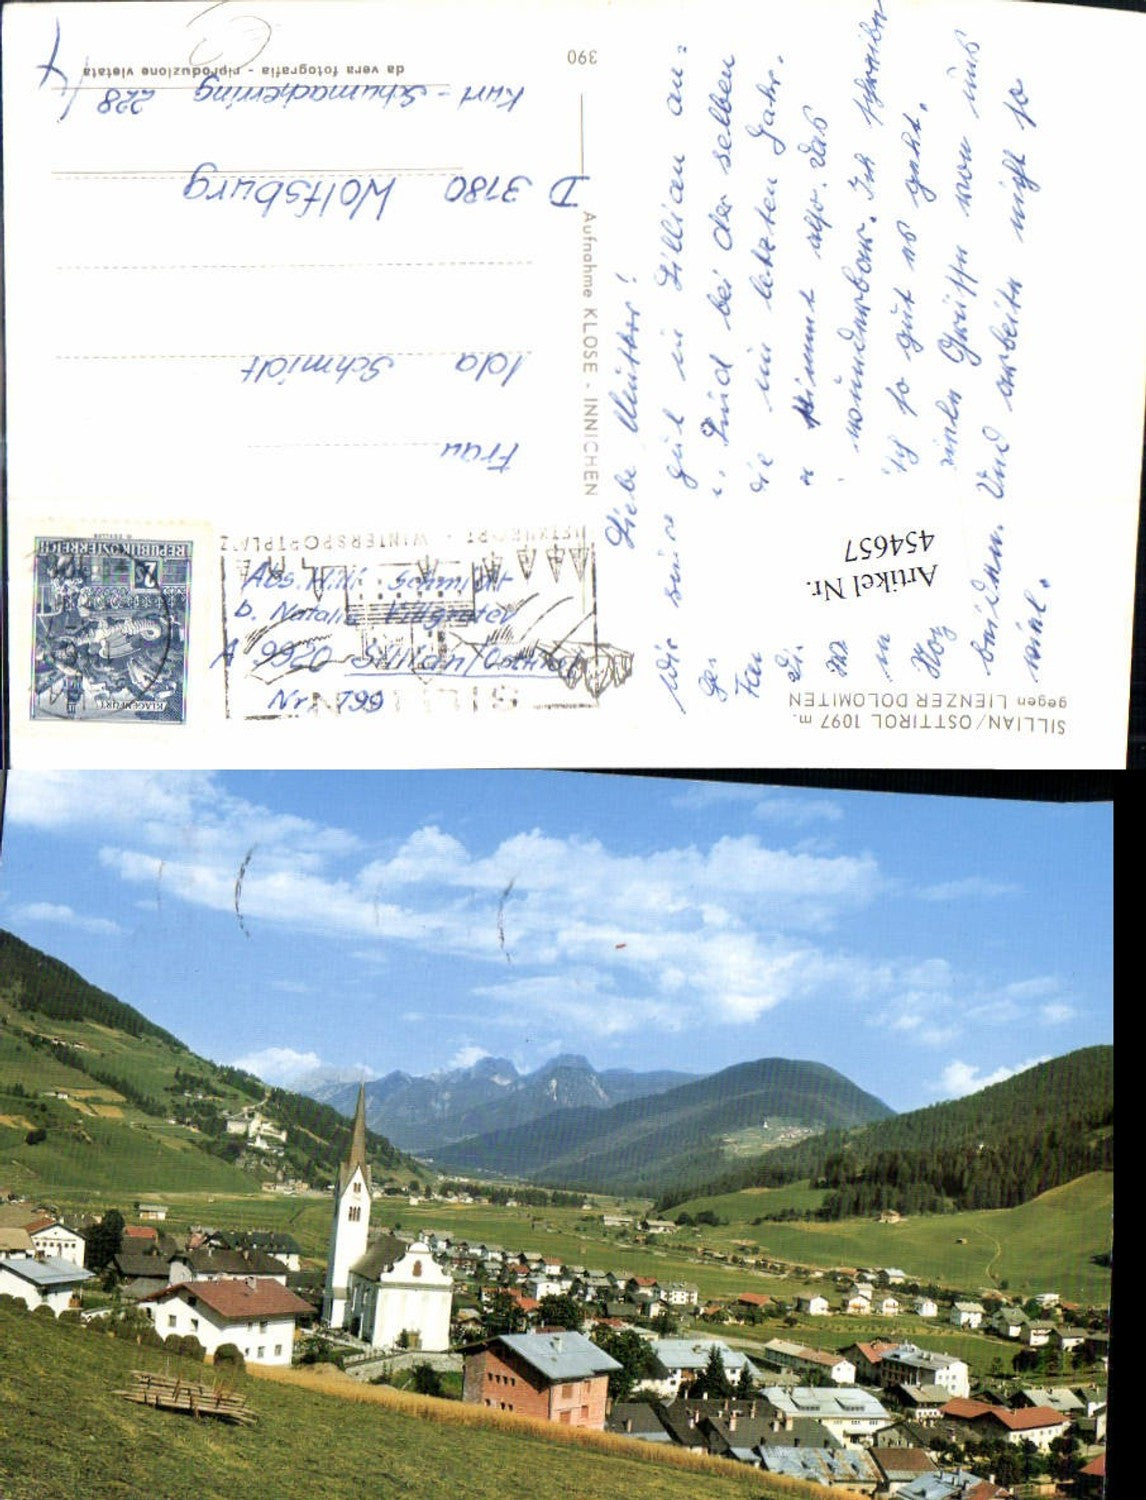 SILLIAN/OSTTIROL 1097 m.
gegen LIENZER DOLOMITEN
Liebe Mutter!
Wir sind gut in Sillian an=
Sind bei der selben
die im letzten Jahr.
nimmt also. Das
wunderbar. Ich schreibe
so gut es geht.
Grüsse von uns
beiden. Und arbeite nicht so
viel.
Artikel Nr.
454657
Aufnahme KLOSE - INNICHEN
390
da vera fotografia - riproduzione vietata
REPUBLIK ÖSTERREICH
KLAGENFURT
WINTERSPORTPLATZ
Abs. Willi Schmidt
b. Natalie Villgrater
A 9920 Sillian/Osttirol
Frau
Ida Schmidt
D 3180 Wolfsburg
Kurt-Schumacherring 228